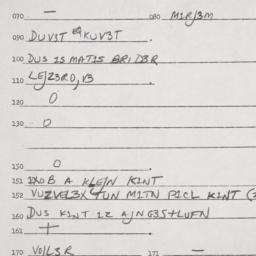 070 — 080 M1R/3M
090 DUV3T EQ KUV3T
100 DUS 1S MAT1S BRID3R
110 LEJZ3RD,V3
120 0
130 0
150 0
151 1XOB A KLEJN K1NT
152 VUZVEL3X TUN M1TN P1CL K1NT (2
160 DUS K1NT 1Z AJNG3S+LUFN
161 +
170 VO/L3R 171 —